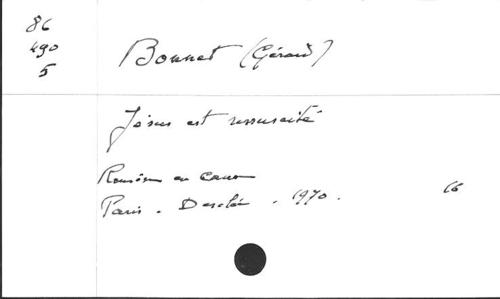 86
490
5
Bonnet (Gérard)
Jésus est ressuscité
en cause
Paris. Desclée. 1970.
16